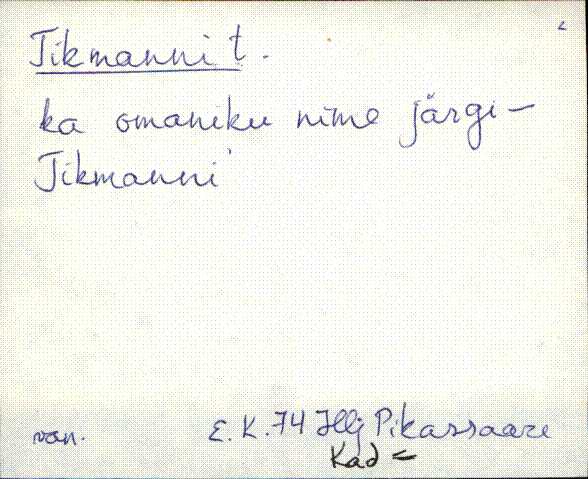 Tikmanni t.
ka omaniku nime järgi –
Tikmanni
van. E. K. 74 Hlj Pikassaare
Kad =